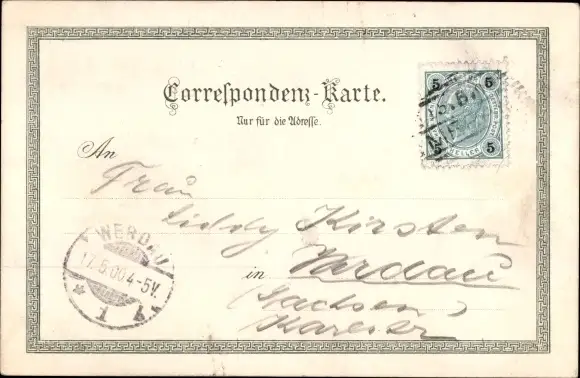 Correspondenz-Karte.
Nur für die Adresse.
5 5
5 5
HELLER
An
Frau
Liddy Kirsten
in Werdau
(Sachsen)
WERDAU
17.5.00.4-5V.
* 1 b *